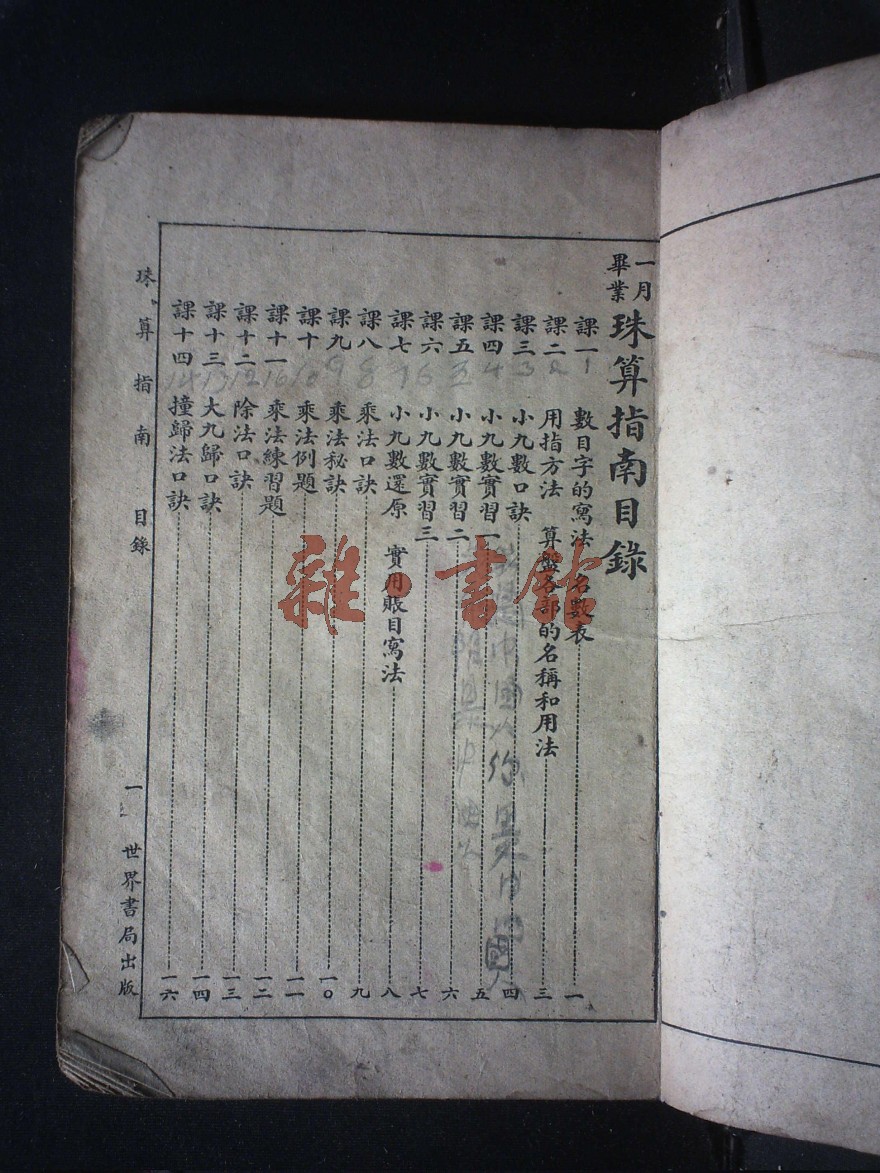 一月
畢業
珠算指南目錄
課一 1 數目字的寫法 名數表 一
課二 2 用指方法 算盤各部的名稱和用法 三
課三 3 小九數口訣 四
課四 4 小九數實習一 五
課五 5 小九數實習二 六
課六 6 小九數實習三 七
課七 7 小九數還原 實用賬目寫法 八
課八 8 乘法口訣 九
課九 9 乘法秘訣 一〇
課十 10 乘法例題 一一
課十一 乘法練習題 一二
課十二 12 除法口訣 一三
課十三 13 大九歸口訣 一四
課十四 14 撞歸法口訣 一六
珠算指南 目錄
一
世界書局出版
雜·書館